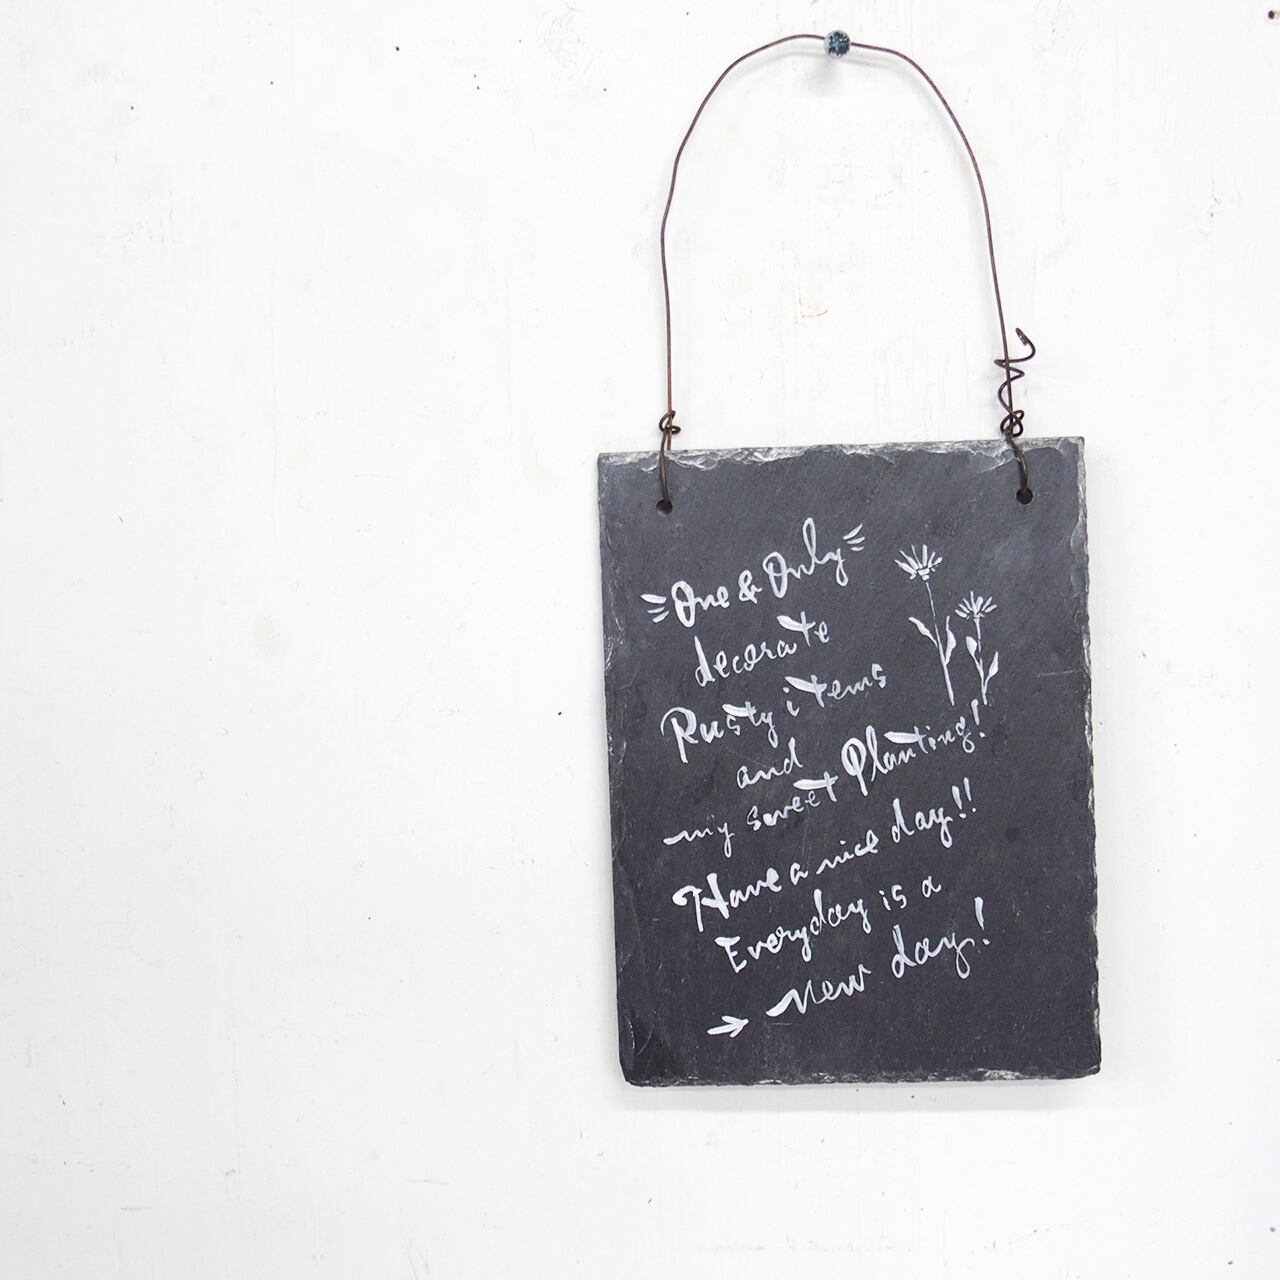 One & Only
decorate
Rusty items
and
my sweet Planting!
Have a nice day!!
Everyday is a
→ New day!